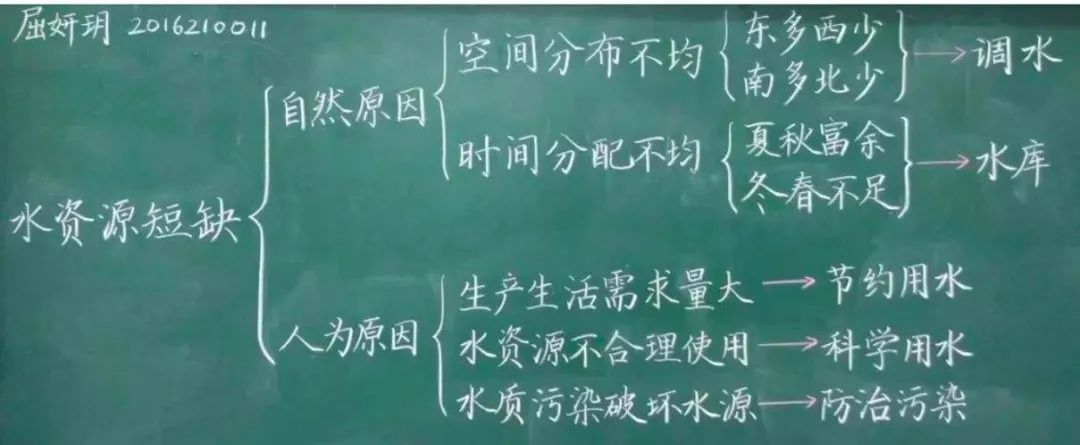 屈妍玥 2016210011
水资源短缺
自然原因
空间分布不均
东多西少
南多北少
调水
时间分配不均
夏秋富余
冬春不足
水库
人为原因
生产生活需求量大 → 节约用水
水资源不合理使用 → 科学用水
水质污染破坏水源 → 防治污染